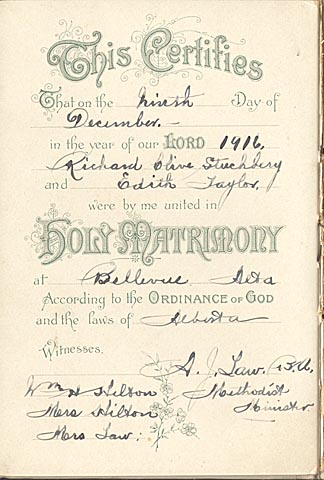 This Certifies
That on the ninth Day of
December.
in the year of our LORD 1916,
Richard Clive Stuchbery
and Edith Taylor,
were by me united in
HOLY MATRIMONY
at Bellevue, Alta
According to the ORDINANCE OF GOD
and the laws of Alberta
Witnesses.
A. J. Law.
Wm H Hilton Methodist
Mrs Hilton Minister.
Mrs Law.